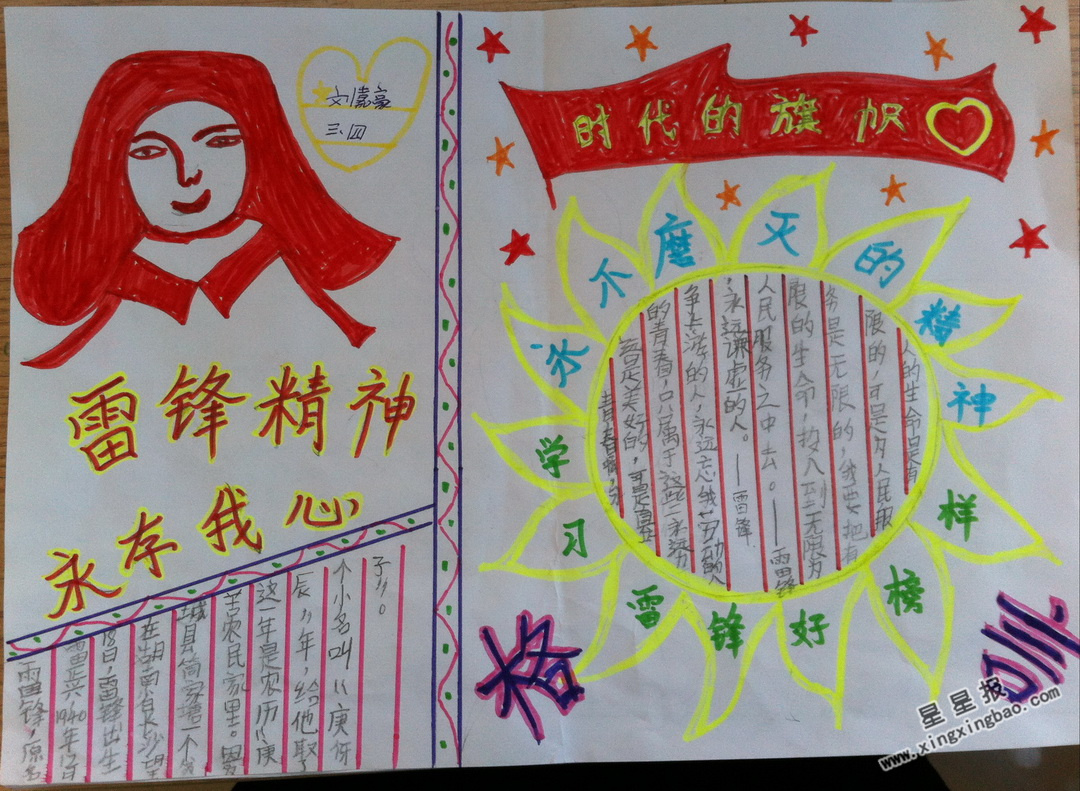 三.四
雷锋精神
永存我心
雷锋,原名
雷正兴1940年12月
18日,雷锋出生
在湖南省长沙望
城县简家塘一个
苦农民家里。因
这一年是农历“庚
辰”年,给他取了
个小名叫“庚伢
子”。
时代的旗帜
永不磨灭的精神
学习雷锋好榜样
人的生命是有
限的,可是为人民服
务是无限的,我要把有
限的生命,投入到无限为
人民服务之中去。——雷锋
青春啊,永
远是美好的,可是真正
的青春,只属于这些永远力
争上游的人,永远忘我劳动的人
,永远谦虚的人。——雷锋
格
星星报
www.xingxingbao.com